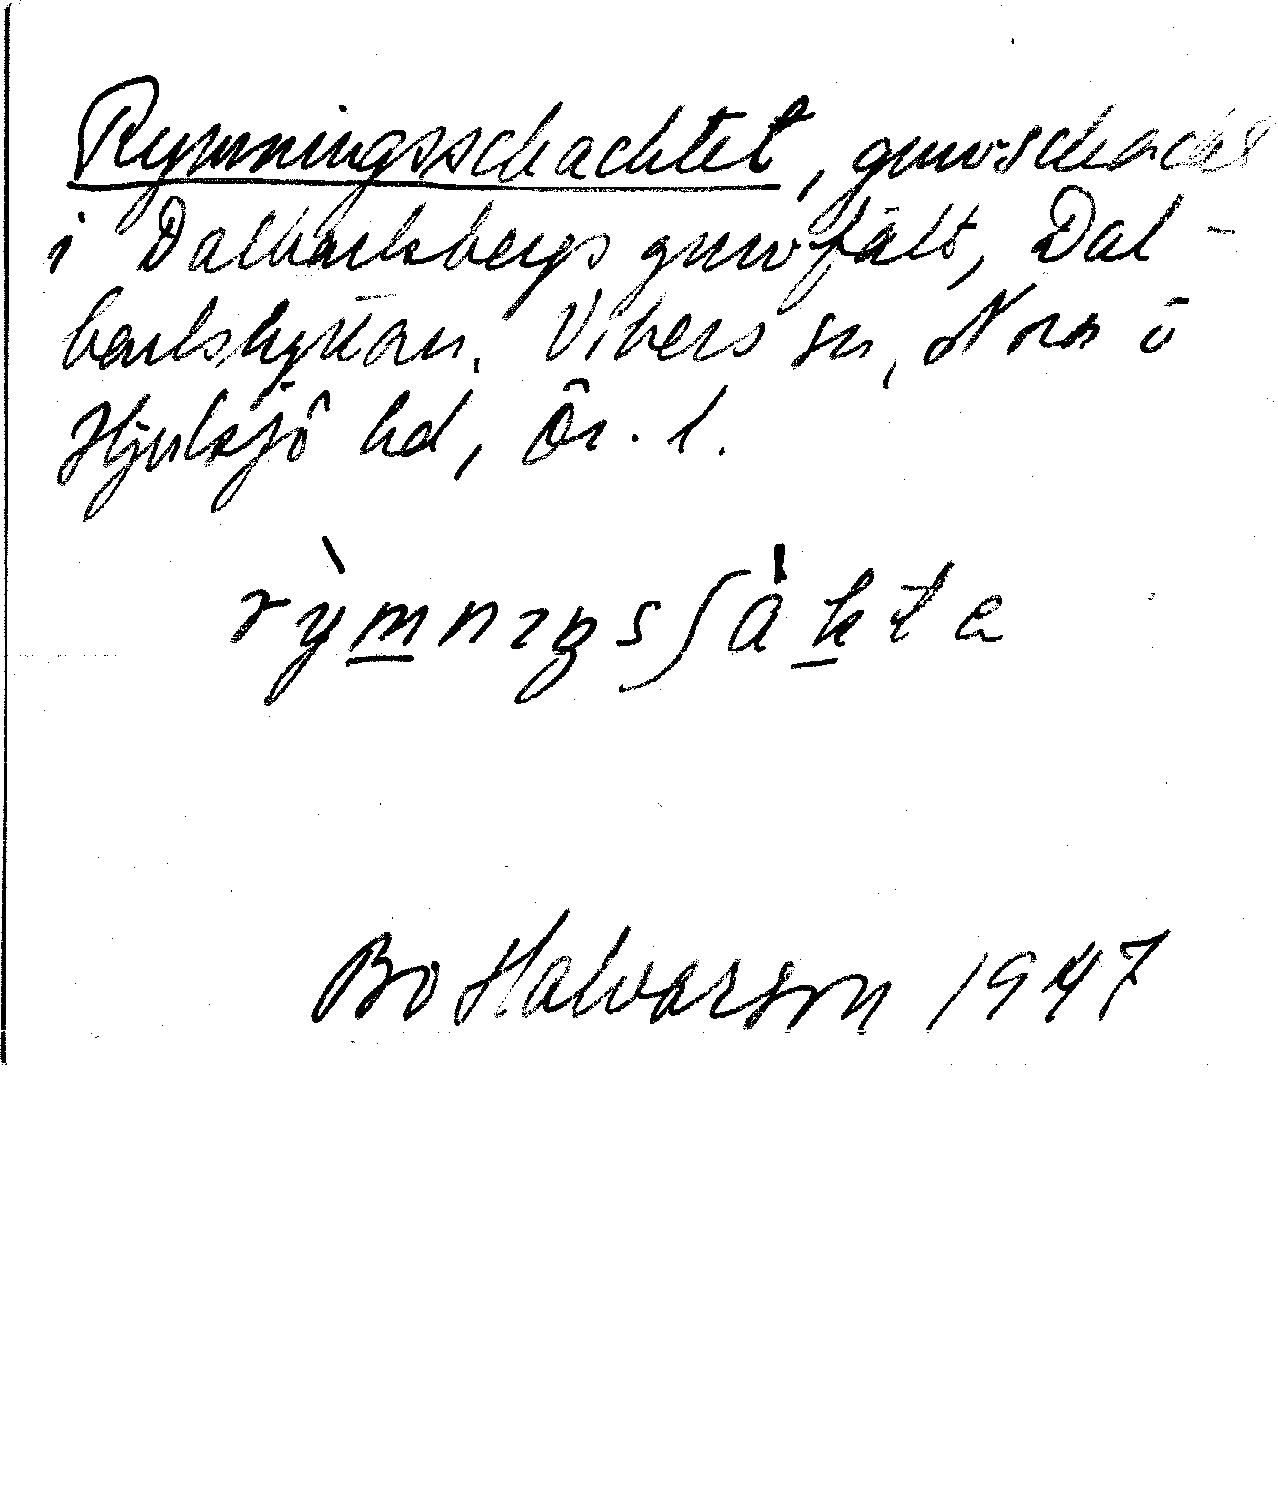 Rymningsschachtet, gruvschacht
i Dalkarlsbergs gruvfält, Dal-
karlshyttan, Vikers sn, Nora o
Hjulsjö hd, Ör. l.
rỳmnıŋsʃàkta
Bo Halvarson 1947